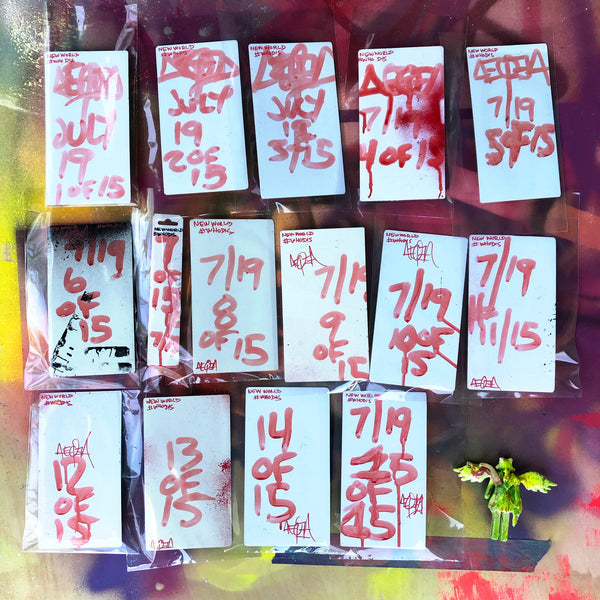 NEW WORLD
#WHO DIS
JULY
19
1 OF 15
NEW WORLD
#WHODIS
JULY
19
2 OF
15
NEW WORLD
#WHODIS
JULY
19
3 OF 15
NEW WORLD
#WHO DIS
7/
4 OF 15
NEW WORLD
#WHODIS
7/19
5 OF 15
7/19
6
OF
15
NEW WORLD
#WHODIS
7
OF
15
7/
NEW WORLD
#WHODIS
7/19
8
OF 15
NEW WORLD
#WHODIS
7/19
9
OF 15
NEW WORLD
#WHODIS
7/19
10 OF
15
NEW WORLD
#WHODIS
7/19
11/15
NEW WORLD
#WHODIS
12
OF
15
NEW WORLD
#WHODIS
13
OF
15
NEW WORLD
#WHODIS
14
OF
15
NEW WORLD
#WHODIS
7/19
15
OF
15